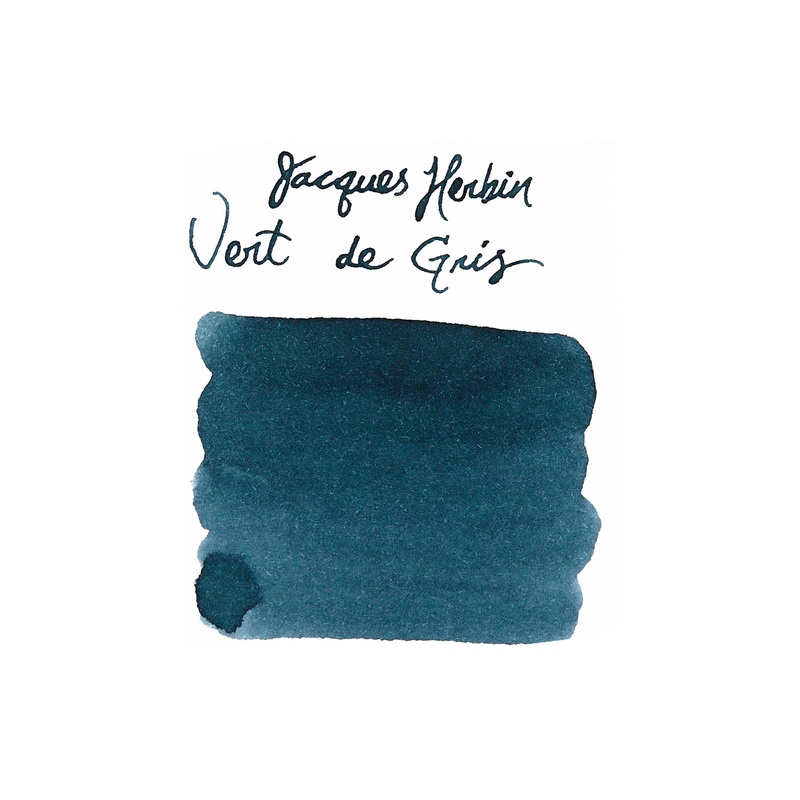 Jacques Herbin
Vert de Gris